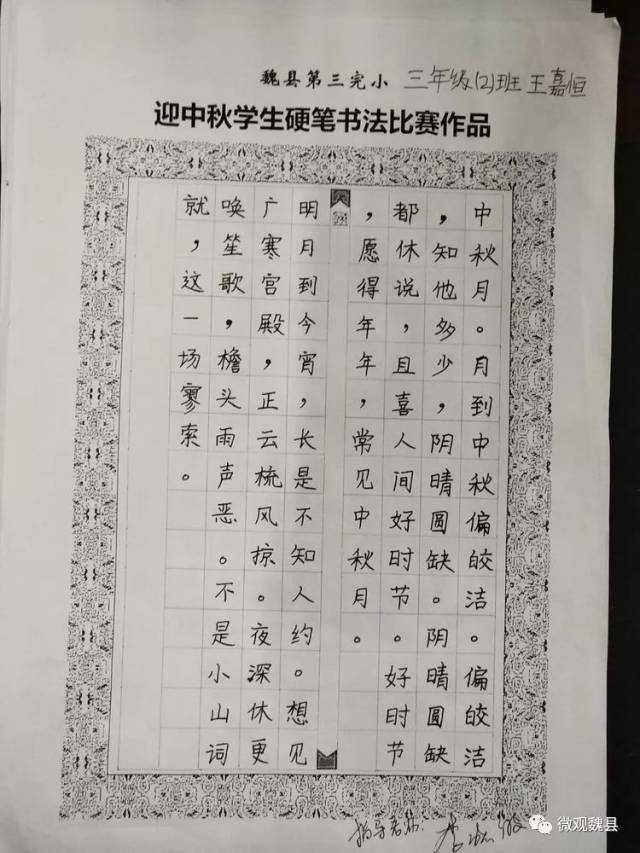 魏县第三完小 三年级(2)班 王嘉恒
迎中秋学生硬笔书法比赛作品
中秋月。月到中秋偏皎洁。偏皎洁
，知他多少，阴晴圆缺。阴晴圆缺
都休说，且喜人间好时节。好时节
，愿得年年，常见中秋月。
明月到今宵，长是不知人约。想见
广寒宫殿，正云梳风掠。夜深休更
唤笙歌，檐头雨声恶。不是小山词
就，这一场寥索。
指导老师：
微观魏县